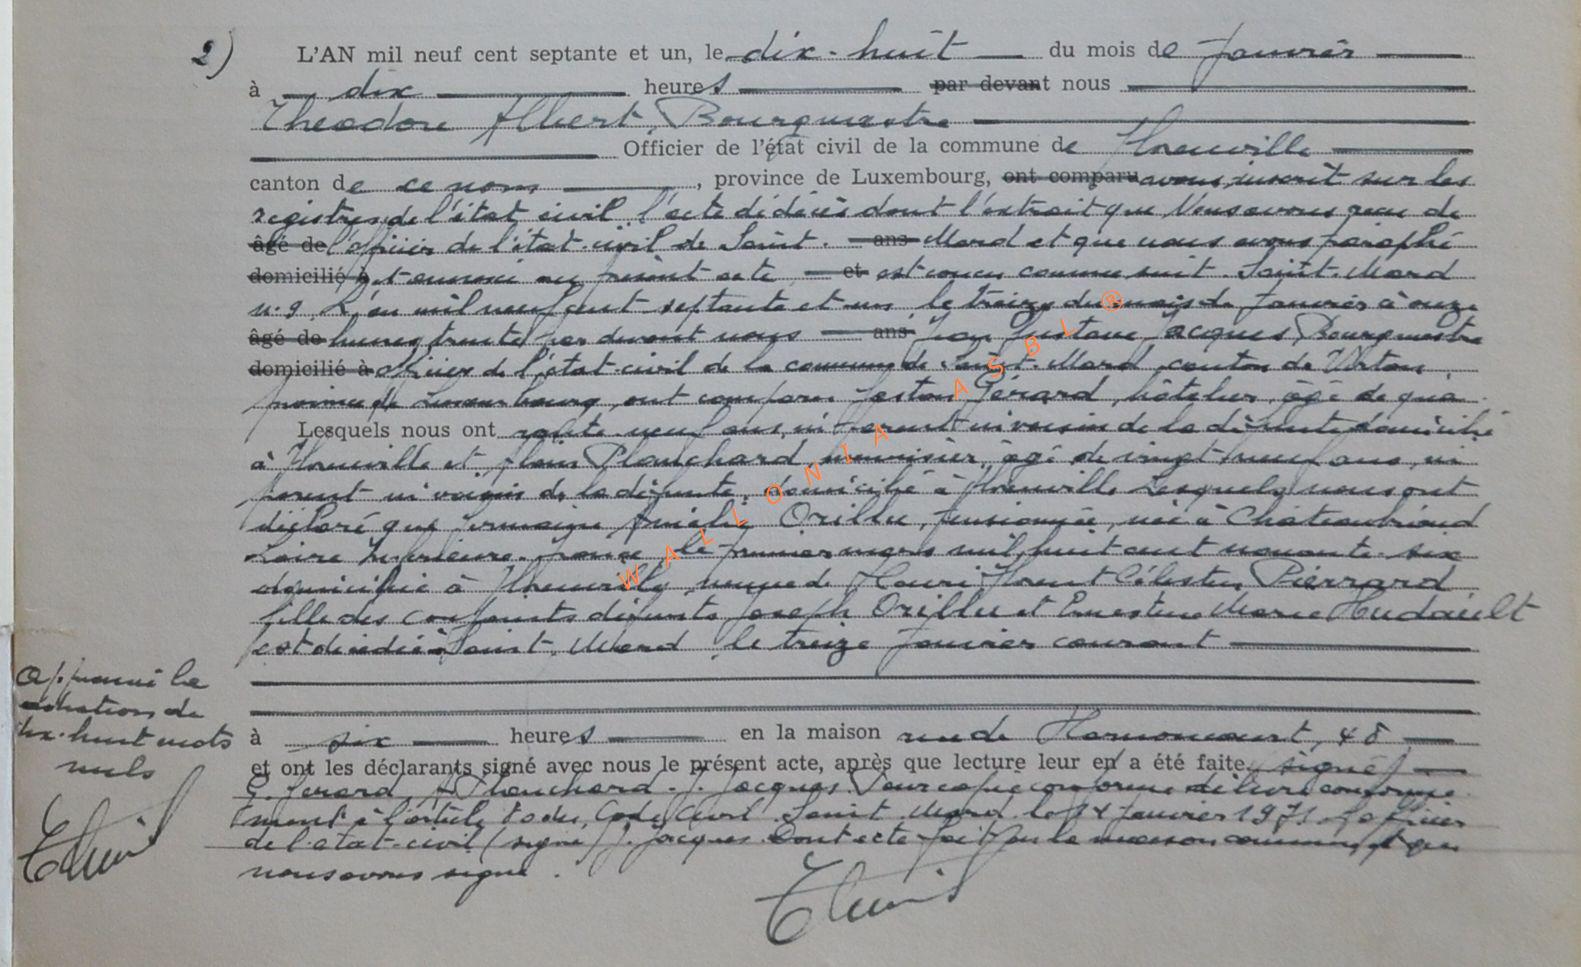 2) L'AN mil neuf cent septante et un, le dix-huit du mois de Janvier
à dix heures par devant nous
Théodore Albert, Bourgmestre
Officier de l'état civil de la commune de Florenville
canton de ce nom, province de Luxembourg, ont comparu avons inscrit sur les
registres de l'état civil l'acte de décès dont l'extrait que Nous avons reçu de
âgé de l'officier de l'état-civil de Saint- ans Mard et que nous avons paraphé
domicilié à et annexé au présent acte et est conçu comme suit. Saint-Mard
n° 9 L'an mil neuf cent septante et un le treize du mois de Janvier à onze
âgé de heures trente par devant nous ans Gustave Jacques, Bourgmestre
domicilié à officier de l'état-civil de la commune de Saint-Mard canton de Virton,
province de Luxembourg, ont comparu Gaston Gérard, hôtelier, âgé de qua-
Lesquels nous ont rante-neuf ans, ni parent ni voisin de la défunte domicilié
à Florenville et Planchard, menuisier, âgé de vingt-neuf ans, ni
parent ni voisin de la défunte, domicilié à Florenville Lesquels nous ont
déclaré que Germaine Amélie Orillu, pensionnée, née à Chateaubriand
Loire Inférieure le premier mars mil huit cent nonante-six
domiciliée à Florenville veuve de Henri Célestin Pierrard
fille des conjoints défunts Joseph Orillu et Ernestine Marie Hudault
est décédée à Saint-Mard le treize janvier courant
à six heures en la maison rue de Harnoncourt, 48
et ont les déclarants signé avec nous le présent acte, après que lecture leur en a été faite. (signé)
G. Gérard, Planchard. J. Jacques. Pour copie conforme délivré conformé-
ment à l'article 80 du Code Civil Saint-Mard le 14 Janvier 1971 L'officier
de l'état-civil (signé) J. Jacques. Dont acte fait en la maison commune et que
nous avons signé.
Approuvé la
de
dix-huit mots
nuls
WALLONIA ASBL ®